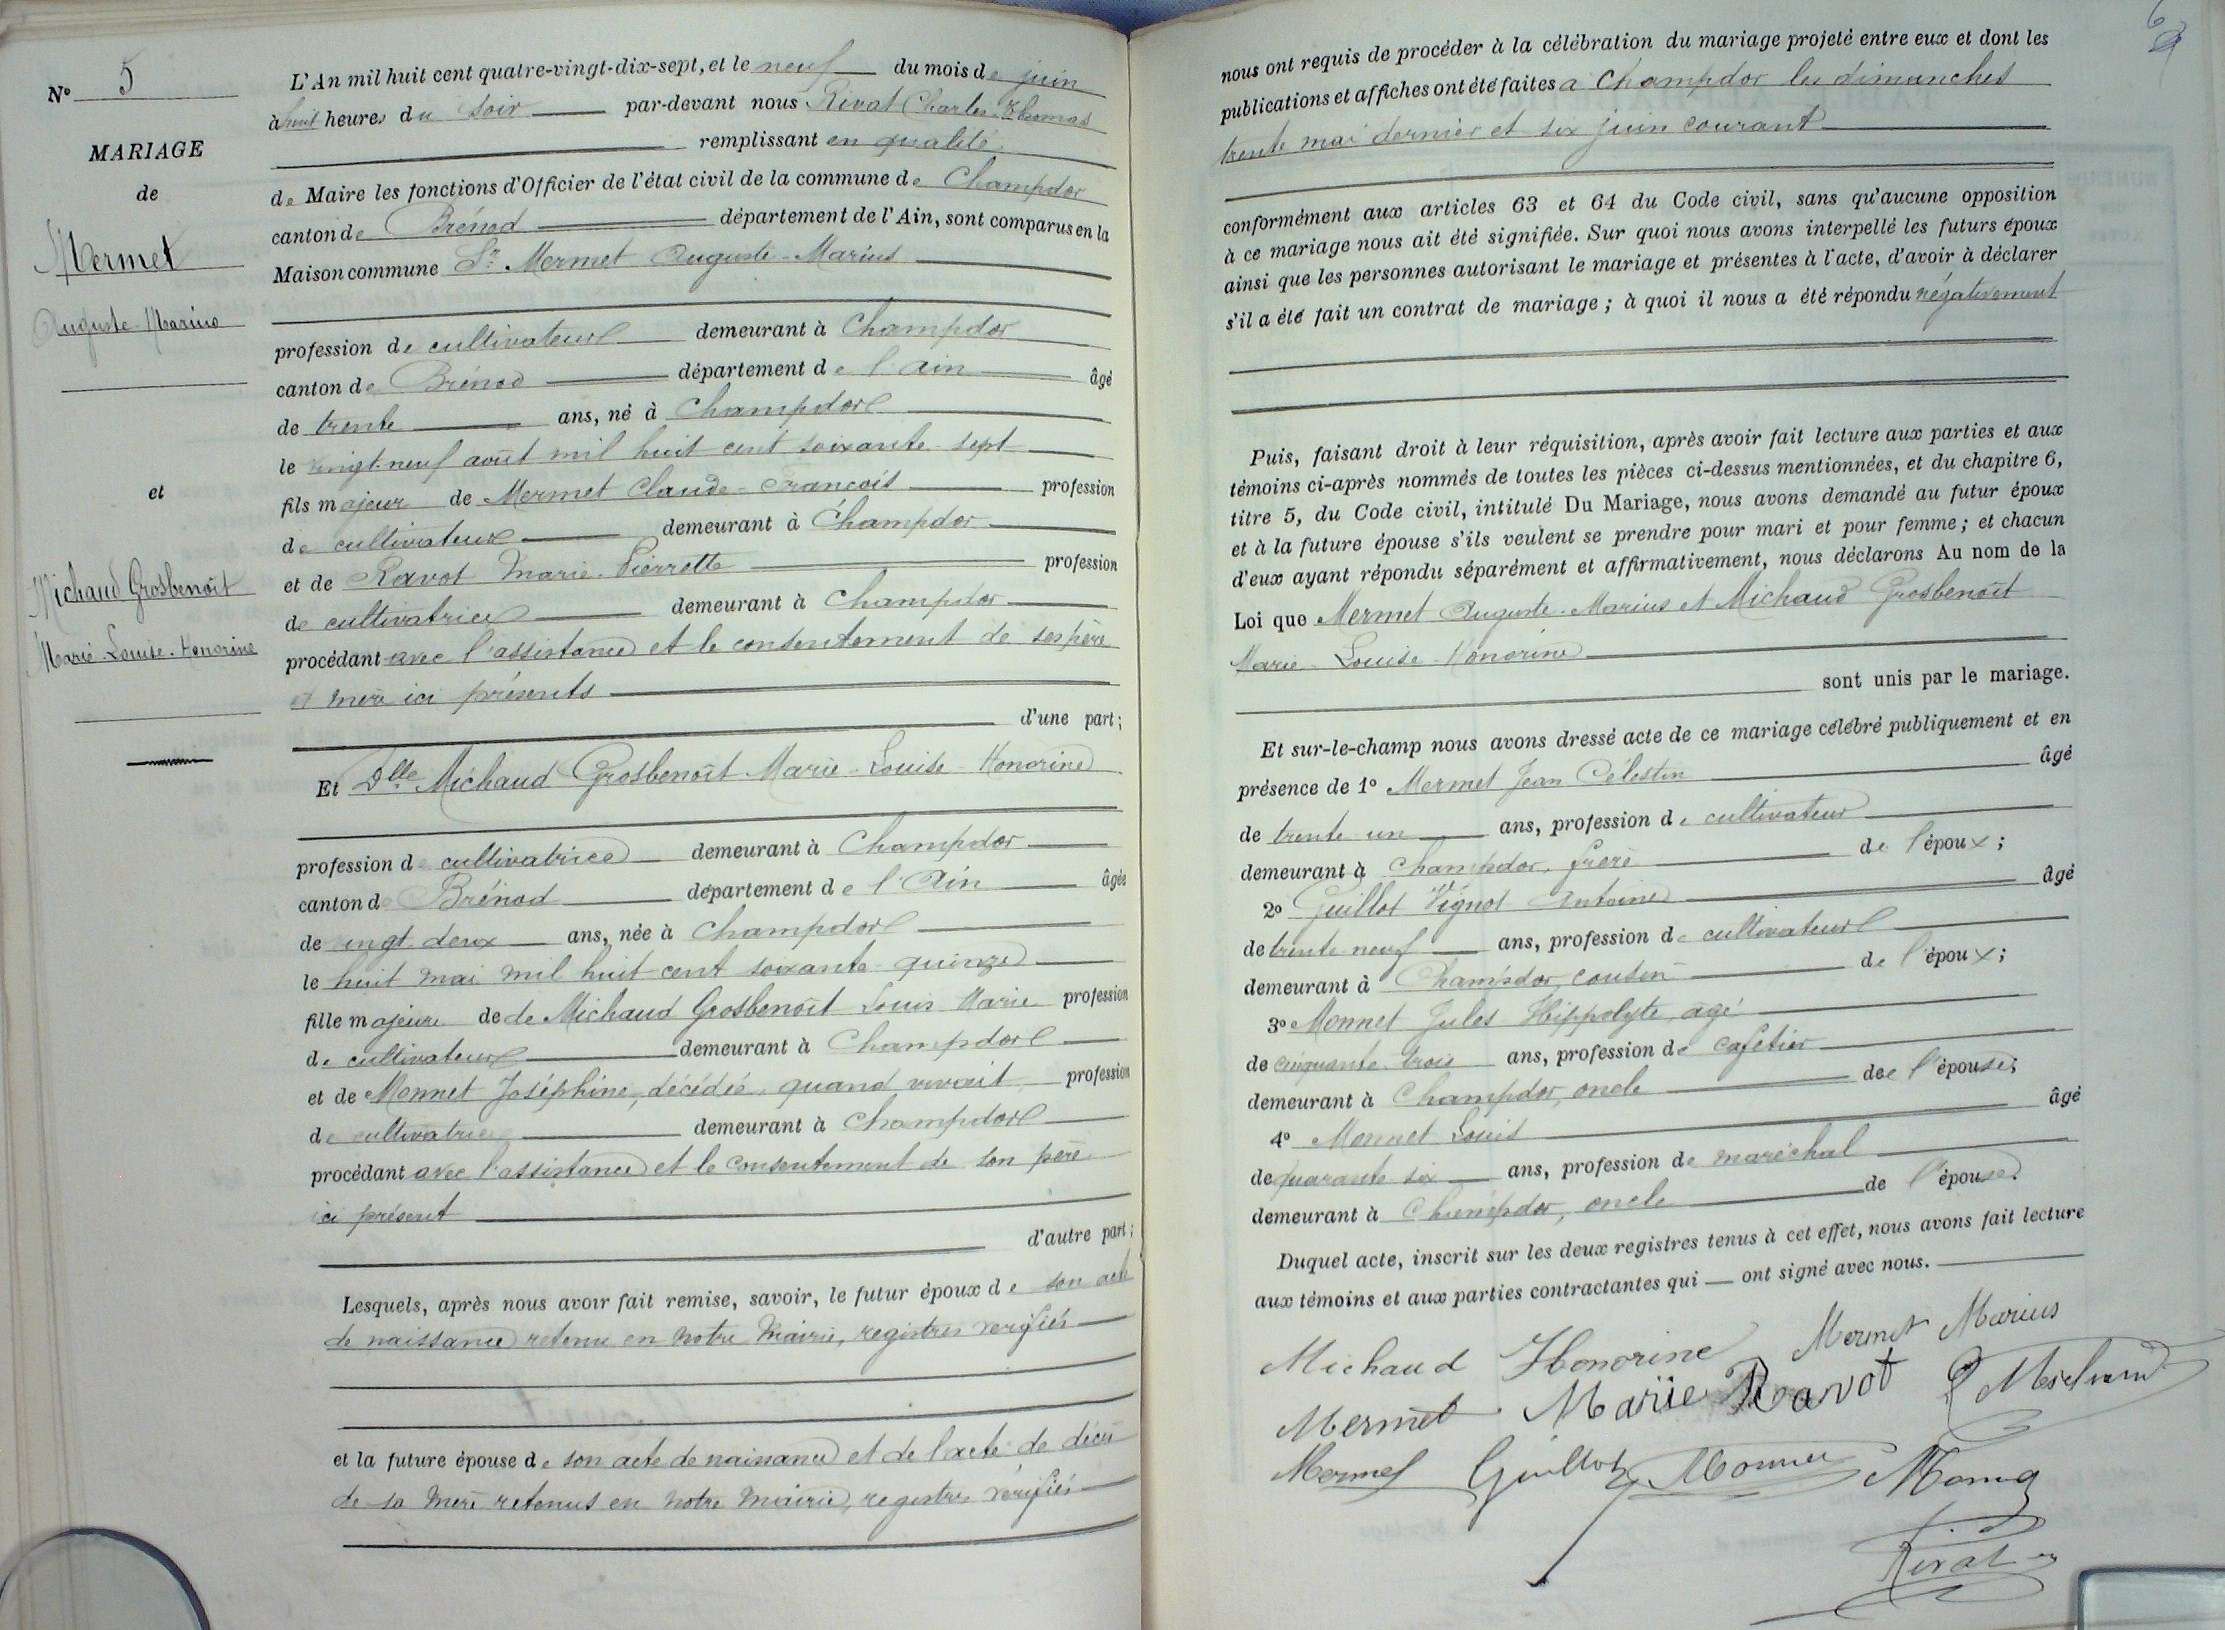 N° 5
MARIAGE
de
Mermet
Auguste-Marius
et
Michaud Grosbenoît
Marie-Louise-Honorine
L'An mil huit cent quatre-vingt-dix-sept, et le neuf du mois de juin
à huit heures du soir par-devant nous Rivat Charles Thomas
remplissant en qualité
de Maire les fonctions d'Officier de l'état civil de la commune de Champdor
canton de Brénod département de l'Ain, sont comparus en la
Maison commune Sr Mermet Auguste-Marius
profession de cultivateur demeurant à Champdor
canton de Brénod département de l'Ain âgé
de trente ans, né à Champdor
le vingt-neuf août mil huit cent soixante-sept
fils majeur de Mermet Claude-François profession
de cultivateur demeurant à Champdor
et de Ravot Marie-Pierrette profession
de cultivatrice demeurant à Champdor
procédant avec l'assistance et le consentement de ses père
et mère ici présents
d'une part;
Et Dlle Michaud Grosbenoît Marie-Louise-Honorine
profession de cultivatrice demeurant à Champdor
canton de Brénod département de l'Ain âgée
de vingt-deux ans, née à Champdor
le huit mai mil huit cent soixante-quinze
fille majeure de de Michaud Grosbenoît Louis Marie profession
de cultivateur demeurant à Champdor
et de Monnet Joséphine, décédée, quand vivait profession
de cultivatrice demeurant à Champdor
procédant avec l'assistance et le consentement de son père
ici présent
d'autre part;
Lesquels, après nous avoir fait remise, savoir, le futur époux de son acte
de naissance retenu en notre Mairie, registres vérifiés
et la future épouse de son acte de naissance et de l'acte de décès
de sa mère retenus en notre mairie, registres vérifiés
6
nous ont requis de procéder à la célébration du mariage projeté entre eux et dont les
publications et affiches ont été faites à Champdor les dimanches
trente mai dernier et six juin courant
conformément aux articles 63 et 64 du Code civil, sans qu'aucune opposition
à ce mariage nous ait été signifiée. Sur quoi nous avons interpellé les futurs époux
ainsi que les personnes autorisant le mariage et présentes à l'acte, d'avoir à déclarer
s'il a été fait un contrat de mariage; à quoi il nous a été répondu négativement
Puis, faisant droit à leur réquisition, après avoir fait lecture aux parties et aux
témoins ci-après nommés de toutes les pièces ci-dessus mentionnées, et du chapitre 6,
titre 5, du Code civil, intitulé Du Mariage, nous avons demandé au futur époux
et à la future épouse s'ils veulent se prendre pour mari et pour femme; et chacun
d'eux ayant répondu séparément et affirmativement, nous déclarons Au nom de la
Loi que Mermet Auguste-Marius et Michaud Grosbenoît
Marie-Louise-Honorine
sont unis par le mariage.
Et sur-le-champ nous avons dressé acte de ce mariage célébré publiquement et en
présence de 1° Mermet Jean Célestin âgé
de trente-un ans, profession de cultivateur
demeurant à Champdor, frère de l'époux;
2° Guillot Vignot Antoine âgé
de trente-neuf ans, profession de cultivateur
demeurant à Champdor, cousin de l'époux;
3° Monnet Jules Hippolyte, âgé
de cinquante-trois ans, profession de cafetier
demeurant à Champdor, oncle de l'épouse;
4° Monnet Louis âgé
de quarante-six ans, profession de maréchal
demeurant à Champdor, oncle de l'épouse.
Duquel acte, inscrit sur les deux registres tenus à cet effet, nous avons fait lecture
aux témoins et aux parties contractantes qui ont signé avec nous.
Michaud Honorine Mermet Marius
Mermet Marie Ravot
Mermet Guillot Monnet
Rivat